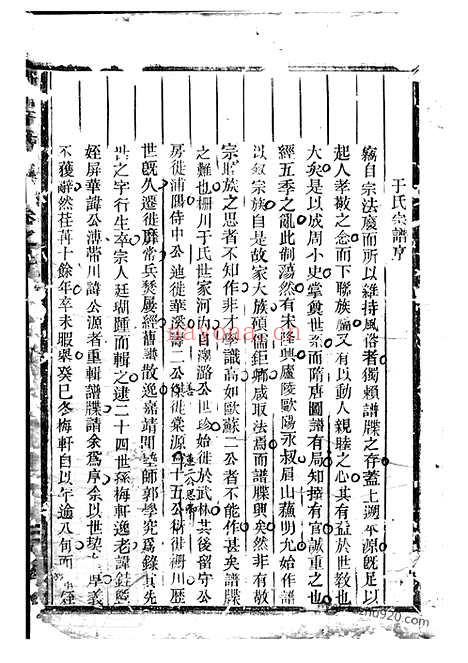 于氏宗譜序
竊自宗法廢而所以維持風俗者獨賴譜牒之存蓋上溯平源既足以
起人孝敬之念而下聯族誼又有以動人親睦之心其有益於世教也
大矣是以成周小史掌奠世系而隋唐圖譜有局知撰有官誠重之也
經五季之亂此制蕩然有宋隆興廬陵歐陽永叔眉山蘇明允始作譜
以敘宗族自是故家大族碩儒鉅卿咸取法焉而譜牒興矣然非有敬
宗睦族之思者不知作非才學識高如歐蘇二公者不能作甚矣譜牒
之難也柵川于氏世家河 潞公世珍始徙於武林其後留守公
房徙浦陽侍中公迪徙華溪 二公傑徙棠源 十五公衍徙柵川歷
惠二公思
世既久遷徙靡常兵燹屢經舊譜散逸嘉靖間塾師郭學究爲錄其先
世之字行生卒宗人廷瑚踵而輯之逮二十四世孫梅軒逸老諱銈暨
姪屏華諱公溥帶川諱公源者重輯譜牒請余爲序余以世契 厚義
不獲辭然荏苒十餘年卒未暇舉癸巳冬梅軒自以年逾八旬而
卷之
nayona.cn
my920.com